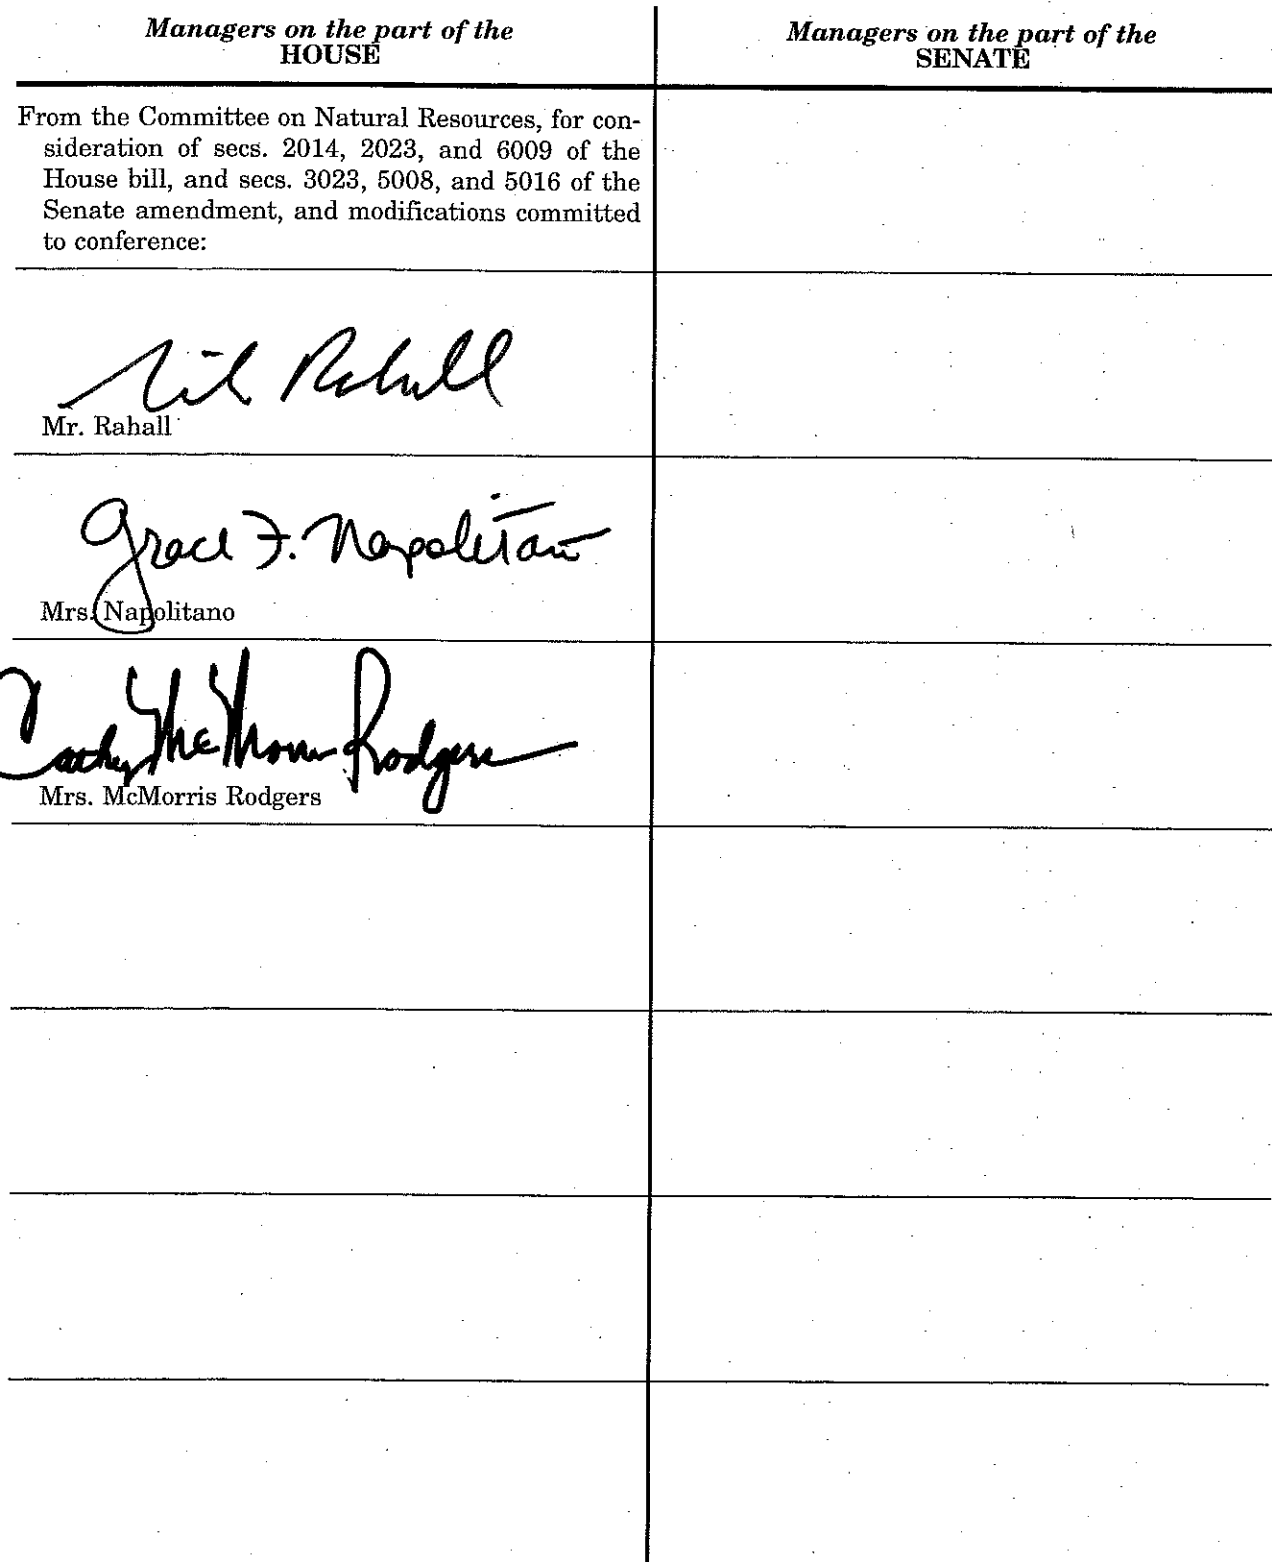 Managers on the part of the
HOUSE
Managers on the part of the
SENATE
From the Committee on Natural Resources, for con-
sideration of secs. 2014, 2023, and 6009 of the
House bill, and secs. 3023, 5008, and 5016 of the
Senate amendment, and modifications committed
to conference:
Nick Rahall
Mr. Rahall
Grace F. Napolitano
Mrs. Napolitano
Cathy McMorris Rodgers
Mrs. McMorris Rodgers